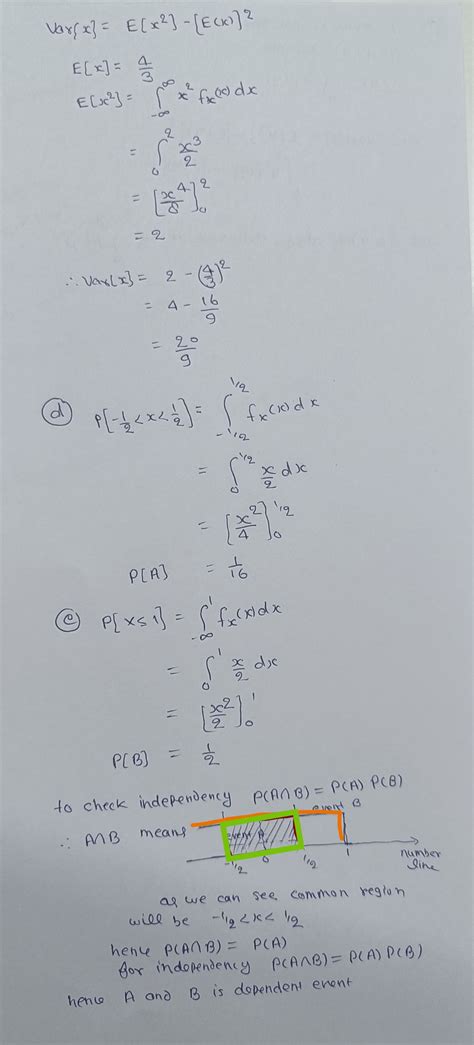 Var[x] = E[x²] - [E(x)]²
E[x] = 4/3
E[x²] = ∫_{-∞}^{∞} x² fx(x) dx
= ∫_0^2 x³/2
= [x⁴/8]_0^2
= 2
∴ Var[x] = 2 - (4/3)²
= 4 - 16/9
= 20/9
(d) P[-1/2 < x < 1/2] = ∫_{-1/2}^{1/2} fx(x) dx
= ∫_0^{1/2} x/2 dx
= [x²/4]_0^{1/2}
P[A] = 1/16
(e) P[X ≤ 1] = ∫_{-∞}^1 fx(x) dx
= ∫_0^1 x/2 dx
= [x²/2]_0^1
P[B] = 1/2
to check independency P(A∩B) = P(A) P(B)
event B
∴ A∩B means
event A
-1/2 0 1/2 1
number
line
as we can see common region
will be -1/2 < x < 1/2
hence P(A∩B) = P(A)
for independency P(A∩B) = P(A) P(B)
hence A and B is dependent event